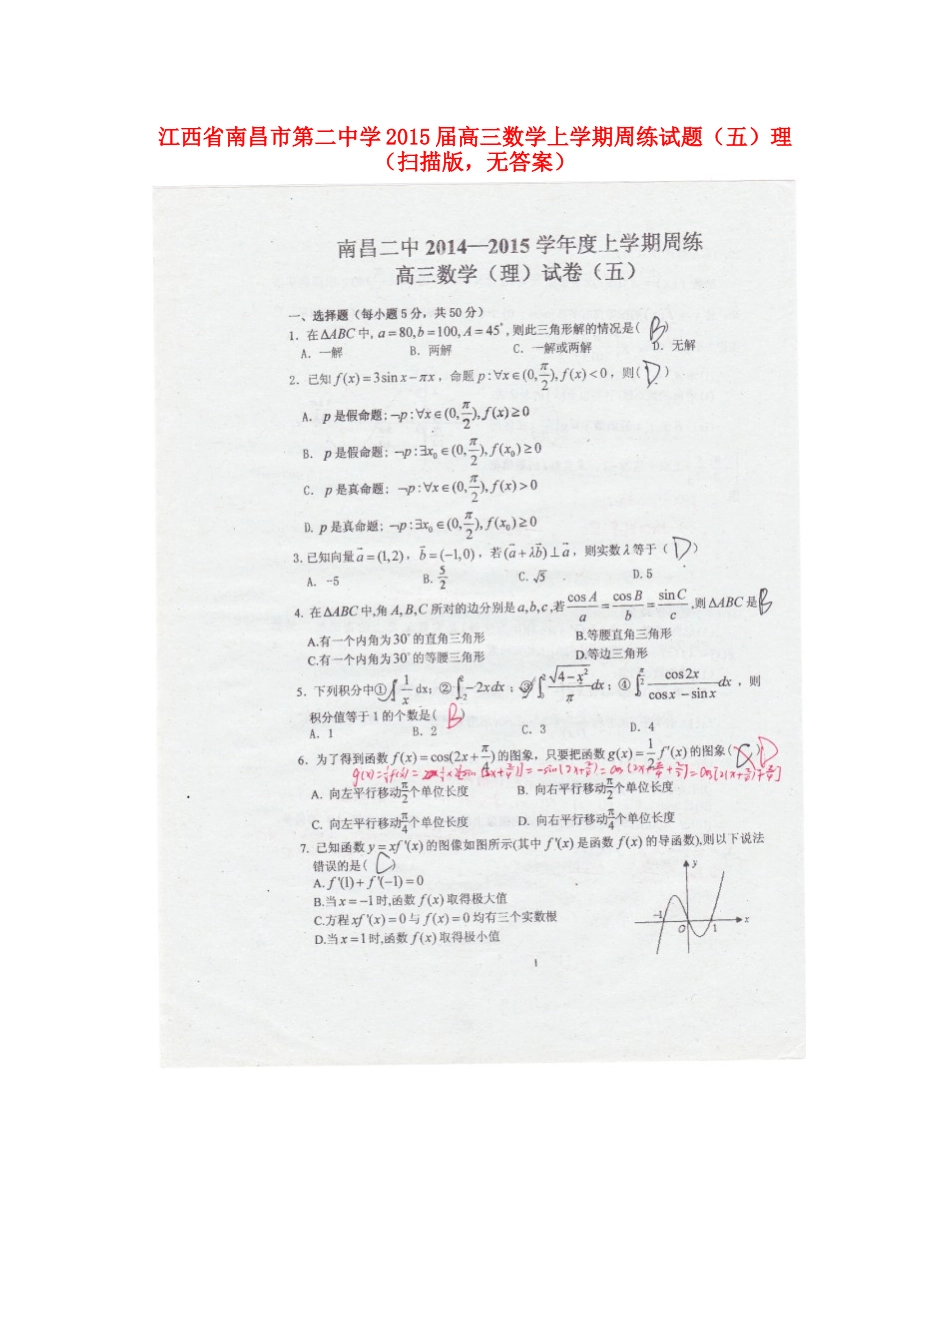 江西省南昌市第二中学 2015 届高三数学上学期周练试题（五）理
（扫描版，无答案）
南昌二中 2014—2015 学年度上学期周练
高三数学（理）试卷（五）
一、选择题（每小题 5 分，共 50 分）
1. 在 ΔABC 中, a=80,b=100,A=45°,则此三角形解的情况是( B )
A. 一解 B. 两解 C. 一解或两解 D. 无解
2. 已知 f(x)=3sin x−πx，命题 p:∀x∈(0,π/2),f(x)<0，则( D )
A. p 是假命题; ¬p:∀x∈(0,π/2),f(x)≥0
B. p 是假命题; ¬p:∃x₀∈(0,π/2),f(x₀)≥0
C. p 是真命题; ¬p:∀x∈(0,π/2),f(x)>0
D. p 是真命题; ¬p:∃x₀∈(0,π/2),f(x₀)≥0
3. 已知向量 a⃗=(1,2)，b⃗=(−1,0)，若(a⃗+λb⃗)⊥a⃗，则实数 λ 等于( D )
A. -5 B. 5/2 C. √5 D. 5
4. 在 ΔABC 中,角 A,B,C 所对的边分别是 a,b,c,若 cos A/a = cos B/b = sin C/c ,则 ΔABC 是 B
A.有一个内角为 30° 的直角三角形 B.等腰直角三角形
C.有一个内角为 30° 的等腰三角形 D.等边三角形
5. 下列积分中① 1/x dx; ② −2xdx ; ③ √(4−x²)/π dx; ④ cos2x/(cos x−sin x) dx ，则
积分值等于 1 的个数是( B )
A. 1 B. 2 C. 3 D. 4
6. 为了得到函数 f(x)=cos(2x+π/4)的图象，只要把函数 g(x)=1/2 f′(x)的图象( C ) D
A. 向左平行移动π/2个单位长度 B. 向右平行移动π/2个单位长度
C. 向左平行移动π/4个单位长度 D. 向右平行移动π/4个单位长度
7. 已知函数 y=xf′(x)的图像如图所示(其中 f′(x)是函数 f(x)的导函数),则以下说法
错误的是( C )
A. f′(1)+f′(−1)=0
B.当 x=−1时,函数 f(x)取得极大值
C.方程 xf′(x)=0与 f(x)=0均有三个实数根
D.当 x=1时,函数 f(x)取得极小值
y
-1 O 1 x
1